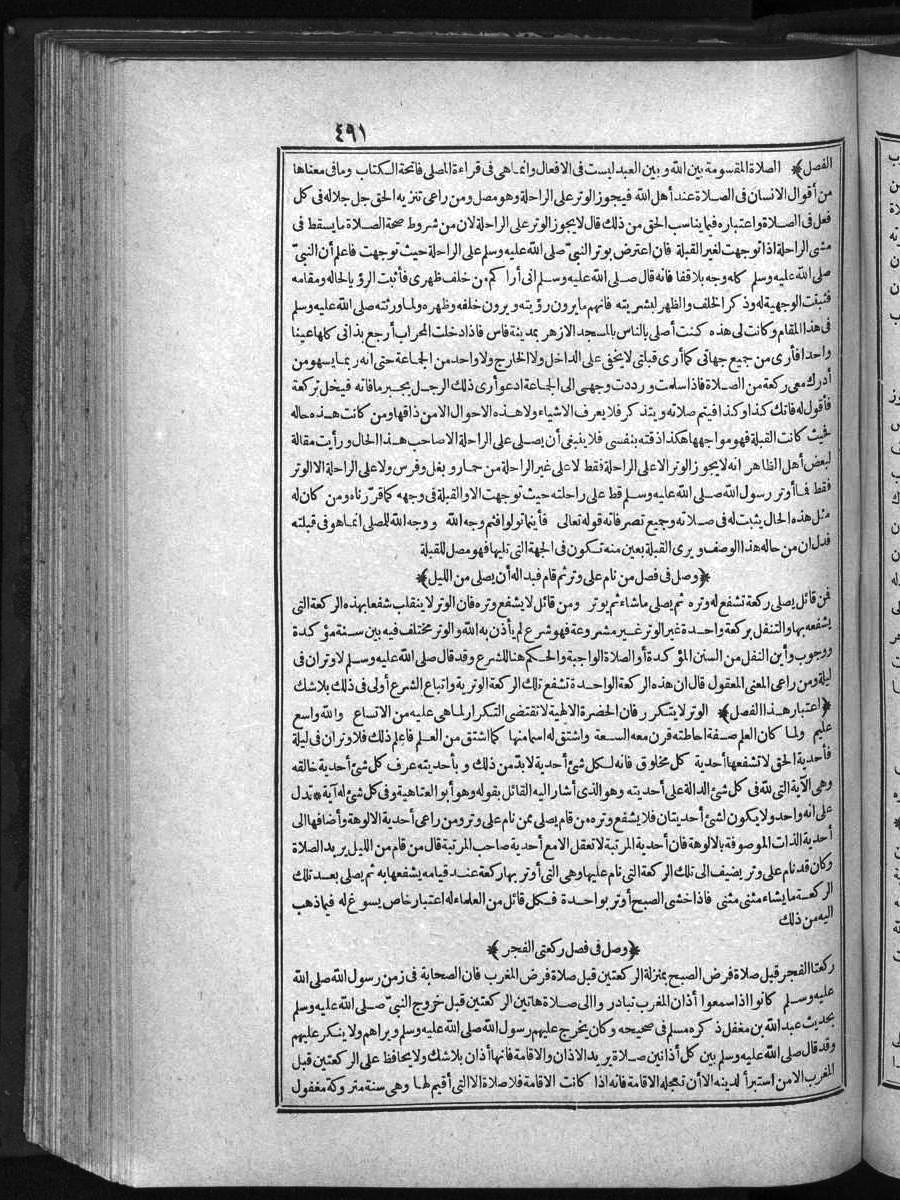 ٤٩١
الفصل﴾ الصلاة المقسومة بين الله وبين العبد ليست فى الافعال وانما هى فى قراءة المصلى فاتحة الكتاب وما فى معناها
من أقوال الانسان فى الصلاة عند أهل الله فيجوز الوتر على الراحلة وهو مصل ومن راعى تنزيه الحق جل جلاله فى كل
فعل فى الصلاة واعتباره فيما يناسب الحق من ذلك قال لا يجوز الوتر على الراحلة لان من شروط صحة الصلاة ما يسقط فى
مشى الراحلة اذا توجهت لغير القبلة فان اعترض بوتر النبىّ صلى الله عليه وسلم على الراحلة حيث توجهت فاعلم أن النبىّ
صلى الله عليه وسلم كله وجه بلا قفا فانه قال صلى الله عليه وسلم انى أراكم من خلف ظهرى فأثبت الرؤيا لحاله ومقامه
فثبتت الوجهية له وذكر الخلف والظهر لبشريته فانهم ما يرون رؤيته ويرون خلفه وظهره ولما ورثته صلى الله عليه وسلم
فى هذا المقام وكانت لى هذه كنت أصلى بالناس بالمسجد الازهر بمدينة فاس فاذا دخلت المحراب أرجع بذاتى كلها عينا
واحدا فأرى من جميع جهاتى كما أرى قبلتى لا يخفى على الداخل ولا الخارج ولا واحد من الجماعة حتى انه ربما يسهو من
أدرك معى ركعة من الصلاة فاذا سلمت ورددت وجهى الى الجماعة ادعو أرى ذلك الرجل يجبر ما فاته فيخل بركعة
فأقول له فاتك كذا وكذا فيتم صلاته ويتذكر فلا يعرف الاشياء ولا هذه الاحوال الا من ذاقها ومن كانت هذه حاله
فحيث كانت القبلة فهو مواجهها هكذا ذقته بنفسى فلا ينبغى أن يصلى على الراحلة الا صاحب هذا الحال ورأيت مقالة
لبعض أهل الظاهر انه لا يجوز الوتر الا على الراحلة فقط لا على غير الراحلة من حمار وبغل وفرس ولا على الراحلة الا الوتر
فقط فما أوتر رسول الله صلى الله عليه وسلم قط على راحلته حيث توجهت الا والقبلة فى وجهه كما قرّرناه ومن كان له
مثل هذه الحال يثبت له فى صلاته وجميع تصرفاته قوله تعالى فأينما تولوا فثم وجه الله ووجه الله للمصلى انما هو فى قبلته
فدل ان من حاله هذا الوصف ويرى القبلة بعين منه تكون فى الجهة التى تليها فهو مصل للقبلة
﴿وصل فى فصل من نام على وتر ثم قام فبدا له أن يصلى من الليل﴾
فمن قائل يصلى ركعة تشفع له وتره ثم يصلى ما شاء ثم يوتر ومن قائل لا يشفع وتره فان الوتر لا ينقلب شفعا بهذه الركعة التى
يشفعه بها والتنفل بركعة واحدة غير الوتر غير مشروعة فهو شرع لم يأذن به الله والوتر مختلف فيه بين سنة مؤكدة
ووجوب وأين النفل من السنن المؤكدة أو الصلاة الواجبة والحكم هنا للشرع وقد قال صلى الله عليه وسلم لا وتران فى
ليلة ومن راعى المعنى المعقول قال ان هذه الركعة الواحدة تشفع تلك الركعة الوترية واتباع الشرع أولى فى ذلك بلا شك
﴿اعتبار هذا الفصل﴾ الوتر لا يتكرر فان الحضرة الالهية لا تقتضى التكرار لما هى عليه من الاتساع والله واسع
عليم ولما كان العلم صفة احاطته قرن معه السعة واشتق له اسما منها كما اشتق من العلم فاعلم ذلك فلا وتران فى ليلة
فأحدية الحق لا تشفعها أحدية كل مخلوق فانه لكل شئ أحدية لابد من ذلك وبأحديته عرف كل شئ أحدية خالقه
وهى الآية التى لله فى كل شئ الدالة على أحديته وهو الذى أشار اليه القائل بقوله وهو أبو العتاهية وفى كل شئ له آية * تدل
على انه واحد ولا يكون لشئ أحديتان فلا يشفع وتره من قام يصلى ممن نام على وتر ومن راعى أحدية الالوهة وأضافها الى
أحدية الذات الموصوفة بالالوهة فان أحدية المرتبة لا تعقل الا مع أحدية صاحب المرتبة قال من قام من الليل يريد الصلاة
وكان قد نام على وتر يضيف الى تلك الركعة التى نام عليها وهى التى أوتر بها ركعة عند قيامه يشفعها به ثم يصلى بعد تلك
الركعة ما يشاء مثنى مثنى فاذا خشى الصبح أوتر بواحدة فكل قائل من العلماء له اعتبار خاص يسوغ له فيما ذهب
اليه من ذلك
﴿وصل فى فصل ركعتى الفجر﴾
ركعتا الفجر قبل صلاة فرض الصبح بمنزلة الركعتين قبل صلاة فرض المغرب فان الصحابة فى زمن رسول الله صلى الله
عليه وسلم كانوا اذا سمعوا أذان المغرب تبادروا الى صلاة هاتين الركعتين قبل خروج النبىّ صلى الله عليه وسلم
بحديث عبد الله بن مغفل ذكره مسلم فى صحيحه وكان يخرج عليهم رسول الله صلى الله عليه وسلم ويراهم ولا ينكر عليهم
وقد قال صلى الله عليه وسلم بين كل أذانين صلاة يريد الاذان والاقامة فانها أذان بلا شك ولا يحافظ على الركعتين قبل
المغرب الا من استبرأ لدينه الا أن تعجله الاقامة فانه اذا كانت الاقامة فلا صلاة الا التى أقيم لها وهى سنة متروكة مغفول